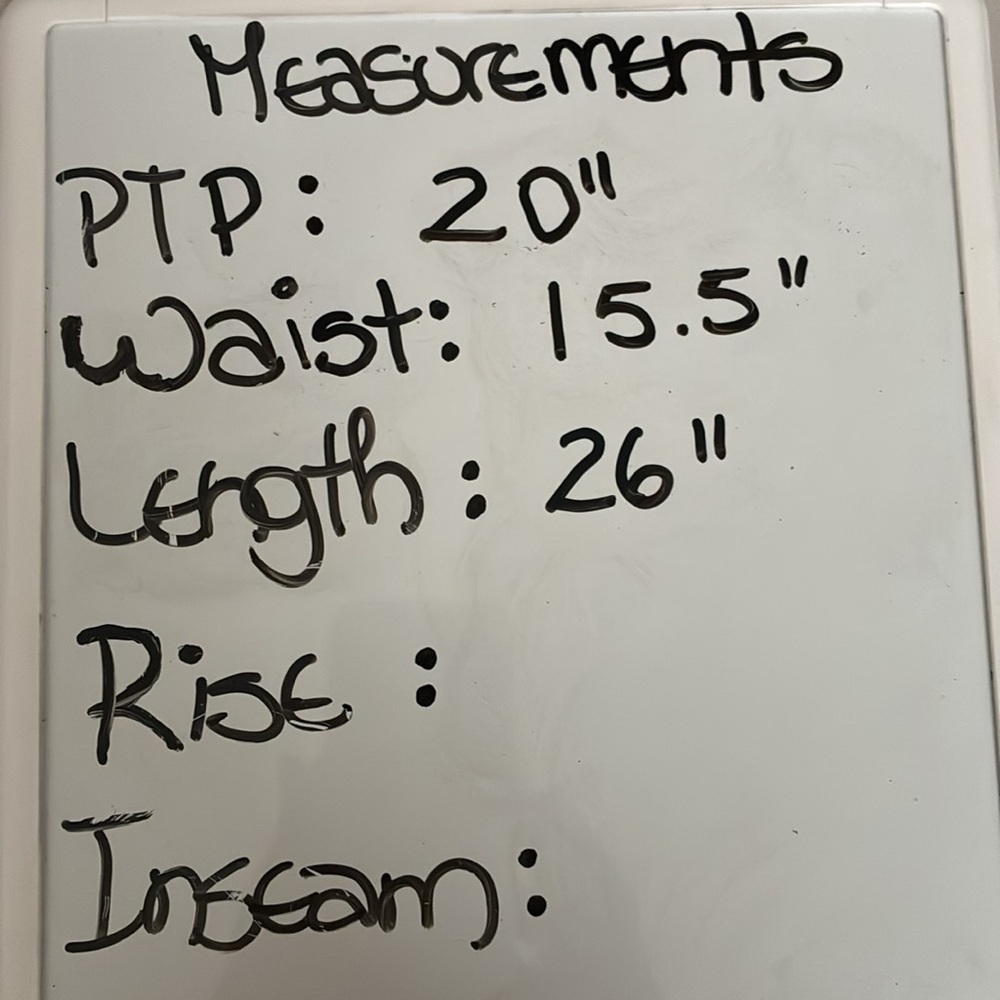 Measurements
PTP: 20"
Waist: 15.5"
Length: 26"
Rise:
Inseam: